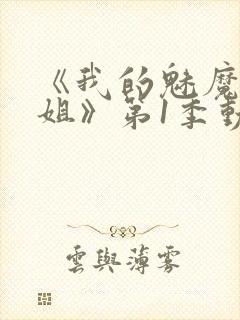 《我的魅魔
姐》第1季動
雲與薄雾